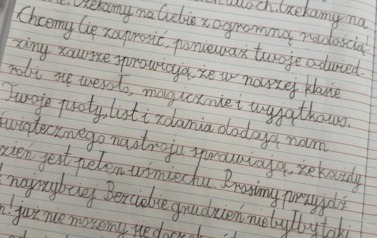 Czekamy na Ciebie z ogromną radością.
Chcemy Cię zaprosić, ponieważ twoje odwied-
ziny zawsze sprawiają, że w naszej klasie
robi się wesoło, magicznie i wyjątkowo.
Twoje psoty, list i zdania dodają nam
świątecznego nastroju sprawiają, że każdy
dzień jest pełen uśmiechu. Prosimy przyjdź
najszybciej Bez ciebie grudzień nie byłby taki
już nie możemy się